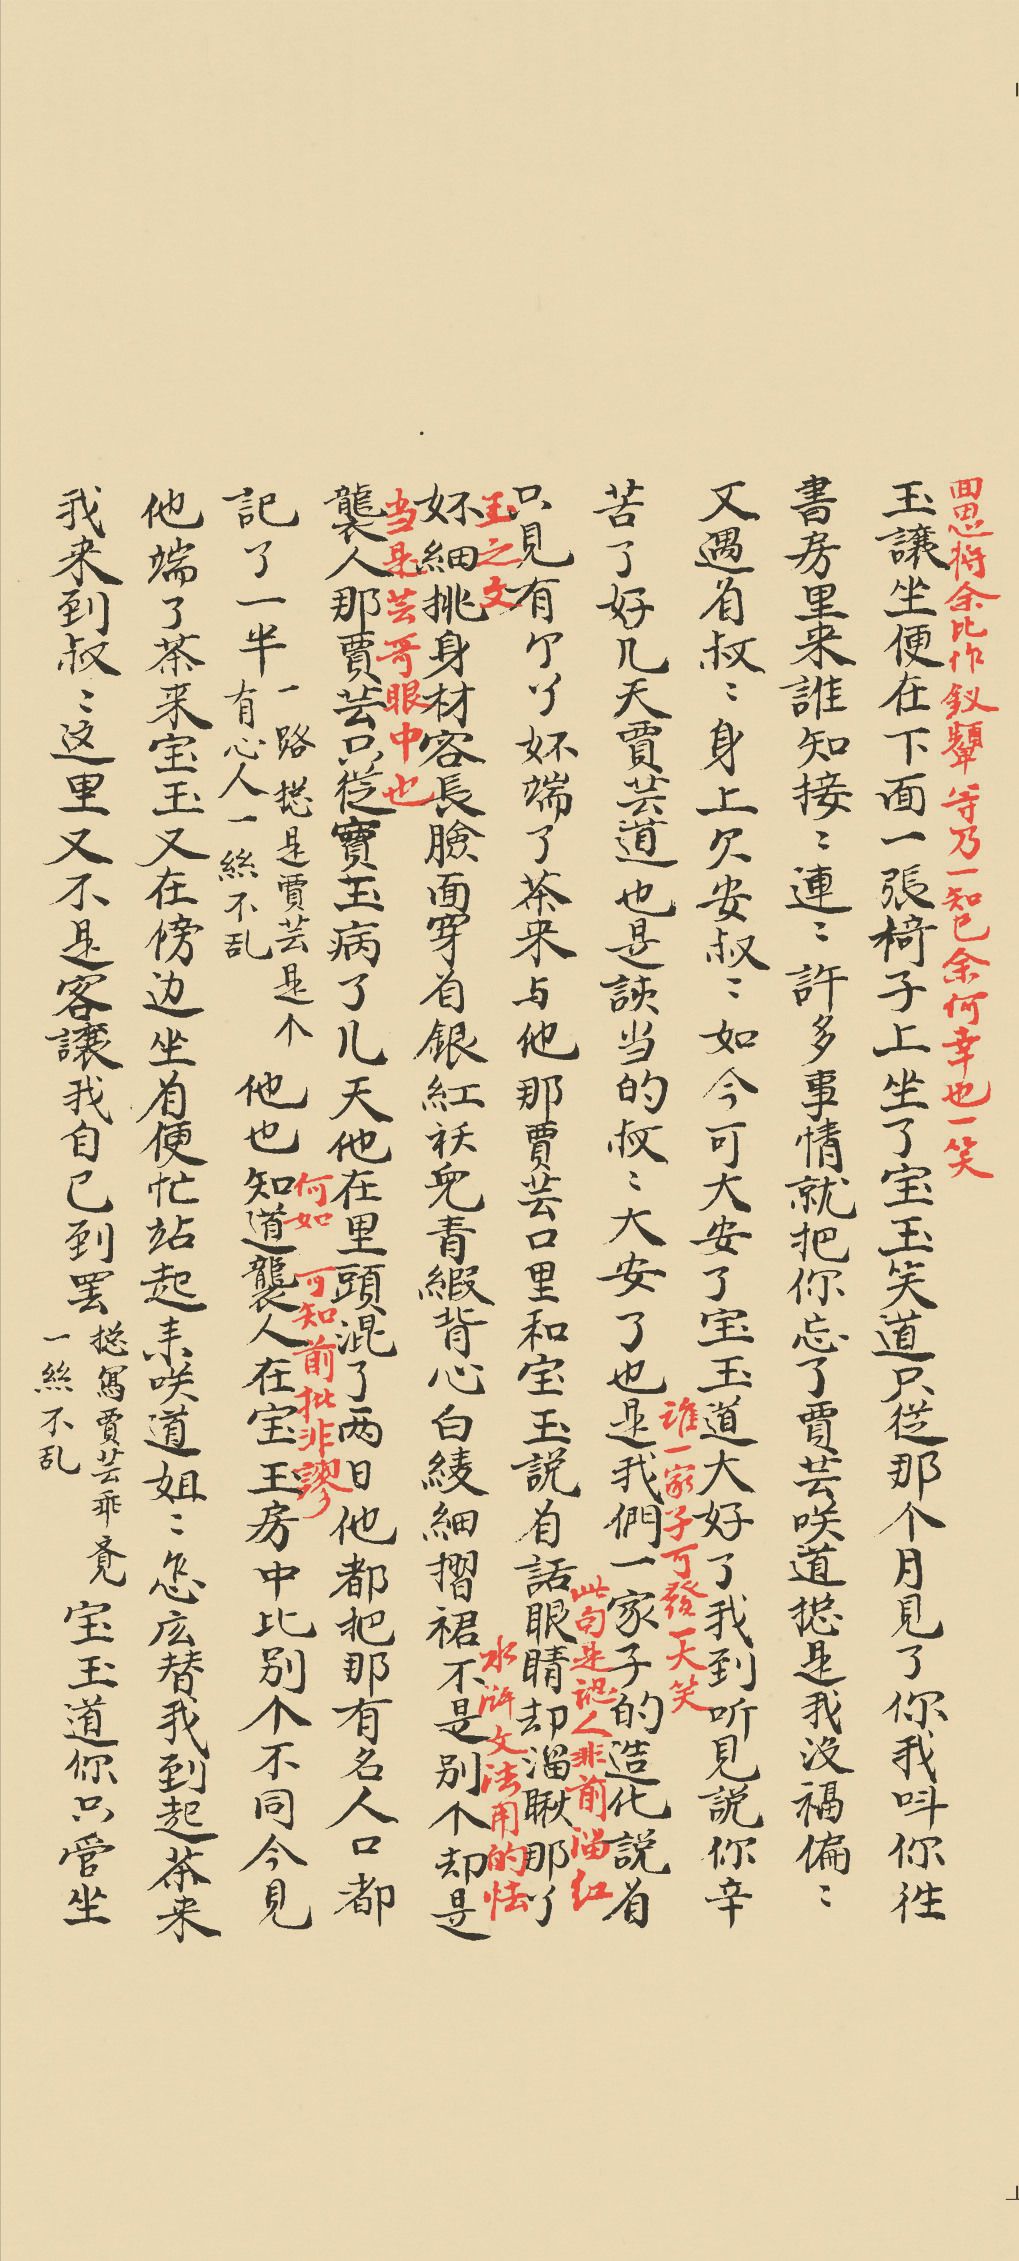 囬思将余比作釵颦等乃一知己余何幸也一笑
玉讓坐便在下面一張椅子上坐了宝玉笑道只從那个月見了你我呌你徃
書房里来誰知接〻連〻許多事情就把你忘了賈芸咲道揔是我沒福偏〻
又遇着叔〻身上欠安叔〻如今可大安了宝玉道大好了我到听見説你辛
誰一家子可發一大笑
苦了好几天賈芸道也是該当的叔〻大安了也是我們一家子的造化説着
此句是認人非前溜红
只見有个丫嬛端了茶来与他那賈芸口里和宝玉説着話眼睛却溜瞅那丫
玉之文
水滸文法用的恠
嬛細挑身材容長臉面穿着銀紅袄兒青緞背心白綾細摺裙不是别个却是
当是芸哥眼中也
襲人那賈芸只從寶玉病了儿天他在里頭混了两日他都把那有名人口都
何如 可知前批非謬
記了一半
一路揔是賈芸是个
有心人一絲不乱
他也知道襲人在宝玉房中比别个不同今見
他端了茶来宝玉又在傍边坐着便忙站起来咲道姐〻怎庅替我到起茶来
我来到叔〻这里又不是客讓我自己到罢
揔寫賈芸乖覔
一絲不乱
宝玉道你只管坐